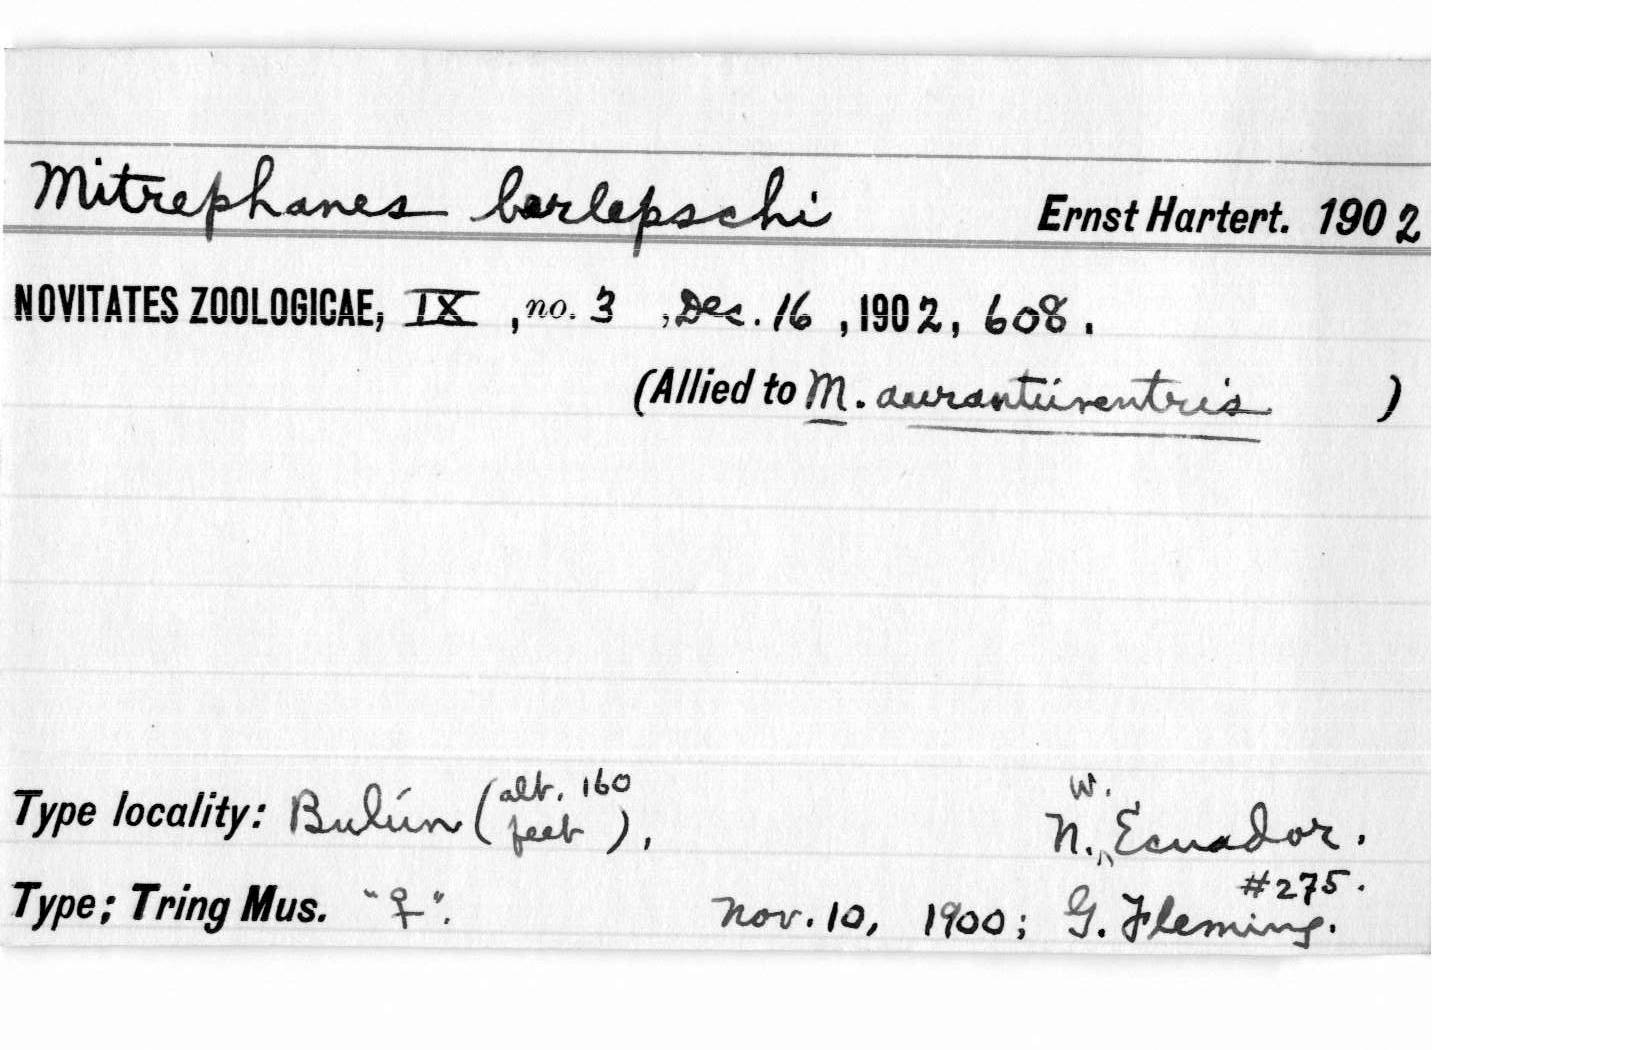 Mitrephanes berlepschi Ernst Hartert. 1902
NOVITATES ZOOLOGICAE, IX, no. 3, Dec. 16, 1902, 608.
(Allied to M. aurantiiventris)
Type locality: Bulún (alt. 160 feet), N.W. Ecuador.
Type; Tring Mus. "♀". Nov. 10, 1900; G. Fleming. #275.